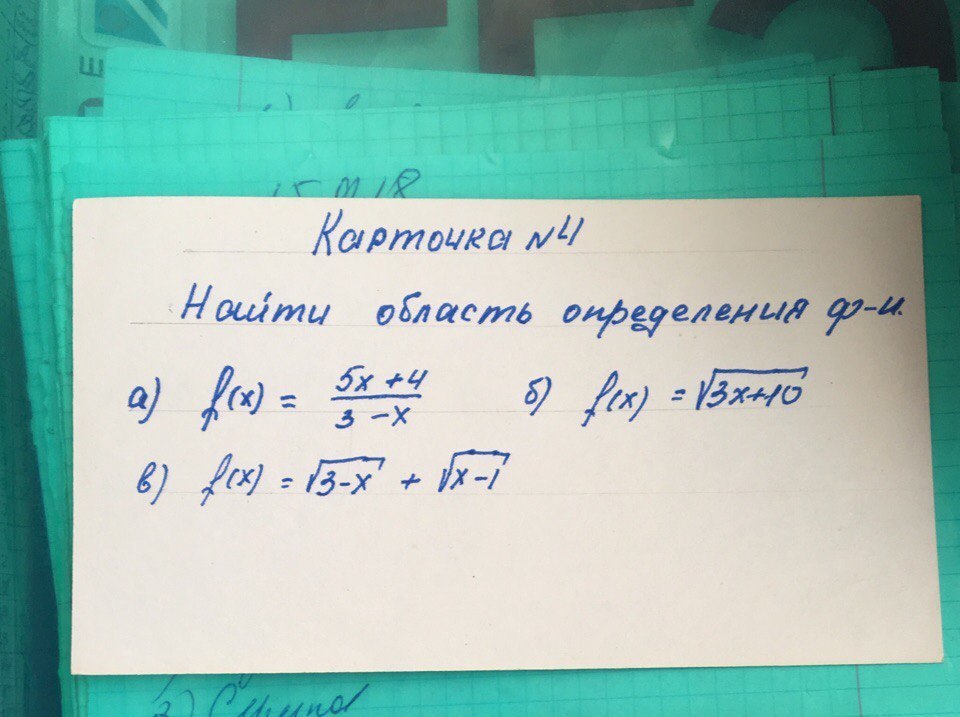 Карточка №4
Найти область определения ф-и.
а) f(x) = \frac{5x+4}{3-x} б) f(x) = √(3x+10)
в) f(x) = √(3-x) + √(x-1)